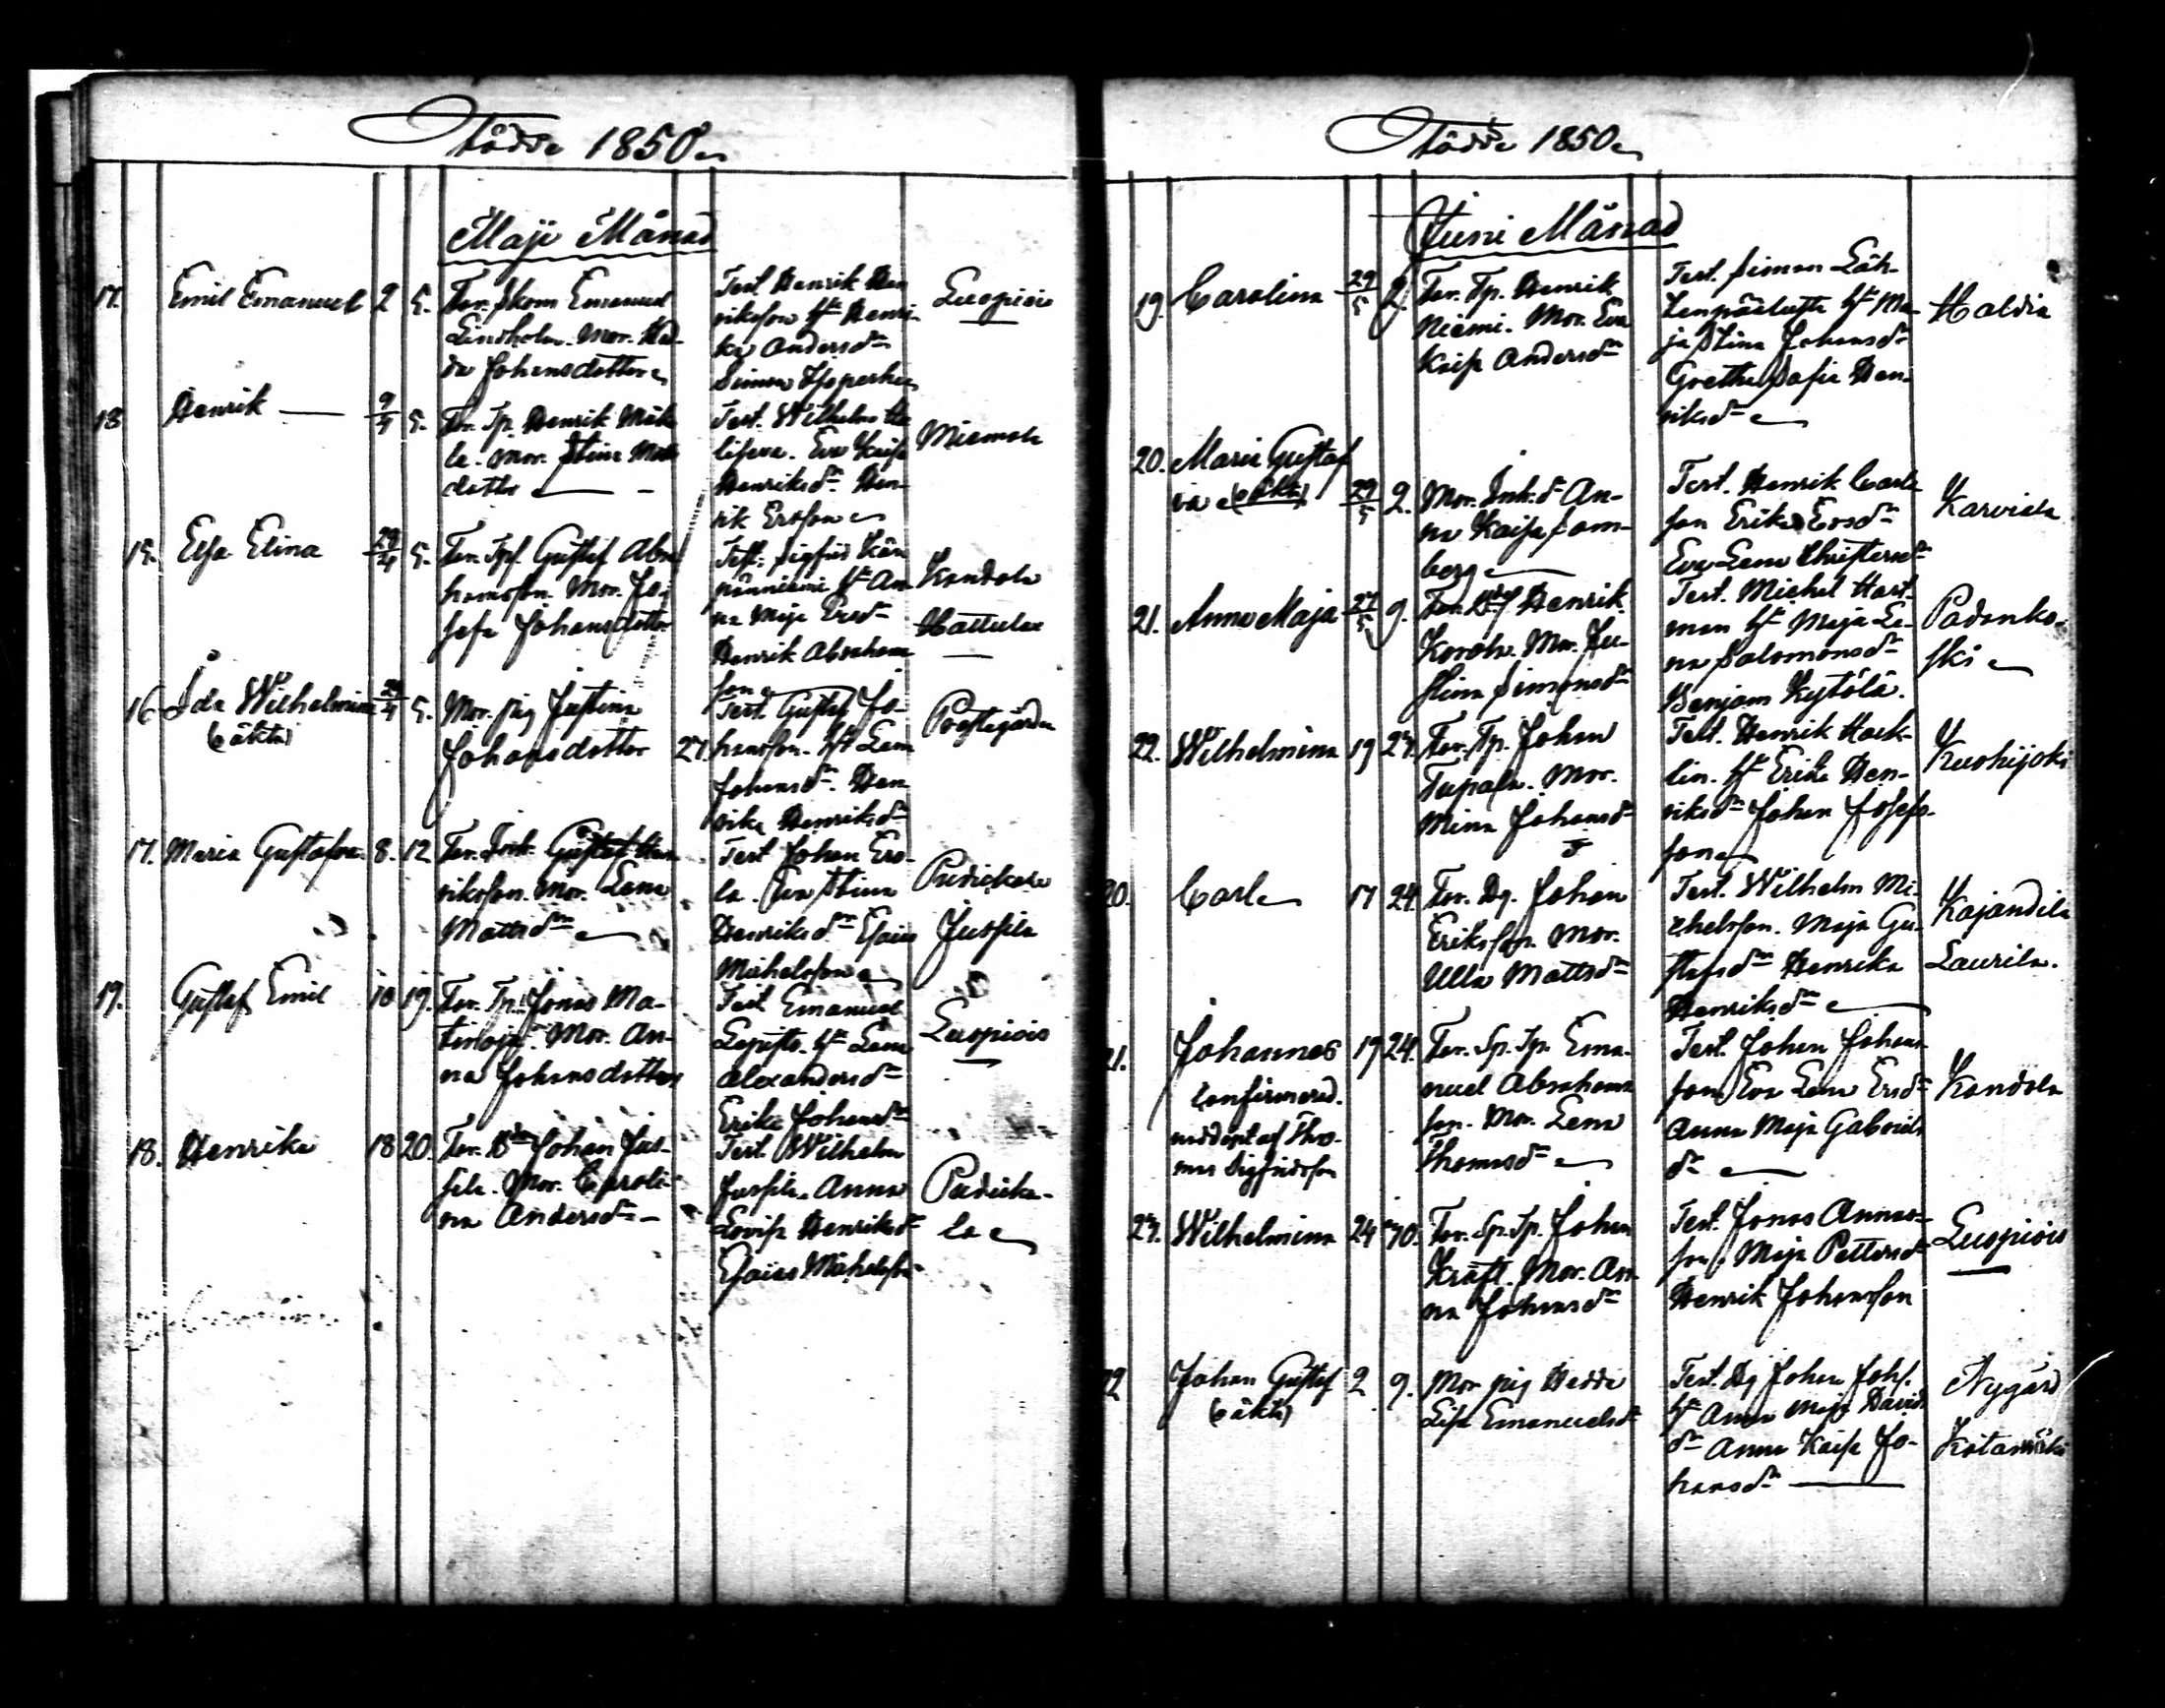 Födde 1850
Maji Månad
17. Emil Emanuel 2 5. Far. Skom Emanuel
Lindholm. Mor. Hed-
da Johansdotter
Test. Henrik Hen-
riksson Ht Henri-
ka Andersdr
Simon
Luopiois
18 Henrik 9/4 5. Far. Tp. Henrik Mäk-
la. Mor. Stina Matts
dotter
Test. Wilhelm
Eva Kaisa
Henriksdr Hen-
rik Ersson
Miemola
15. Elsa Elina 29/4 5. Far. Gustaf Abra
hamsson. Mor. Jo-
sefa Johansdotter
Test. Sigfrid
Ht An
na Maja Ersdr
Henrik Abraham
son
Kandola
Hattula
16. Ida Wilhelmina 29/4 5.
(oäkta)
Mor. pig Justina
Johansdotter 27.
Test. Gustaf Jo-
hansson. Ht Lena
Johansdr Hen
rika Henriksdr
Prestegården
17. Maria Gustafva 8. 12 Far. Inh. Gustaf Hen
riksson. Mor. Lena
Mattsdr
Test Johan Ero-
la. Eva Stina
Henriksdr Esaias
Michelsson
Padickala
Jussila
19. Gustaf Emil 10 19. Far. Tp. Jonas Ma-
tinoja. Mor. An-
na Johansdotter
Test Emanuel
Lepistö. Ht Lena
Alexandersdr
Erika Johansdr
Luopiois
18. Henrika 18 20. Far. Johan Jus-
sila. Mor. Caroli-
na Andersdr
Test. Wilhelm
Jussila. Anna
Lovisa Henriksdr
Esaias Michelsson
Padicka-
la
Födde 1850
Juni Månad
19. Carolina 29/5 2. Far. Tp. Henrik
Niemi. Mor. Eva
Kaisa Andersdr
Test. Simon Läh-
Ht Ma-
ja Stina Johansdr
Gretha Sofia Hen-
riksdr
Haldia
20. Maria Gustaf
va (oäkta) 29/5 2. Mor. Inh. dr An-
na Kaisa Sam-
berg
Test. Henrik Carls
son Erika Ersdr
Eva Lena Christersdr
Karviala
21. Anna Maja 27/5 9. Far. Henrik
Korola. Mor. Ju-
stina Simonsdr
Test. Michel Hart-
man Ht Maja Le-
na Salomonsdr
Benjam Kytölä.
Padanko-
ski
22. Wilhelmina 19 24. Far. Tp. Johan
Tupala. Mor.
Mina Johansdr
Test. Henrik Hack-
lin. Ht Erika Hen-
riksdr Johan Josefs-
son
Kuohijoki
20. Carl 17 24. Far. Dg. Johan
Eriksson. Mor.
Ulla Mattsdr
Test. Wilhelm Mi-
chelsson. Maja Gu-
stafsdr Henrika
Henriksdr
Kajandila
Laurila.
21. Johannes 19 24.
confirmerad.
nöddöpt af Tho-
mas Sigfridsson
Far. Sp. Tp. Ema-
nuel Abrahams
son. Mor. Lena
Thomasdr
Test. Johan Johans-
son Eva Lena Ersdr
Anna Maja Gabriels
dr
Kandola
23. Wilhelmina 24 30. Far. Sp. Tp. Johan
Kräft. Mor. An-
na Johansdr
Test. Jonas Annas-
son Maja Pettersdr
Henrik Johansson
Luopiois
22 Johan Gustaf 2 9.
(oäkta)
Mor pig Hedda
Lisa Emanuelsdr
Test. Dg Johan Johs.
Ht Anna Maja Davids
dr Anna Kaisa Jo-
hansdr
Nygård
Kotamäki